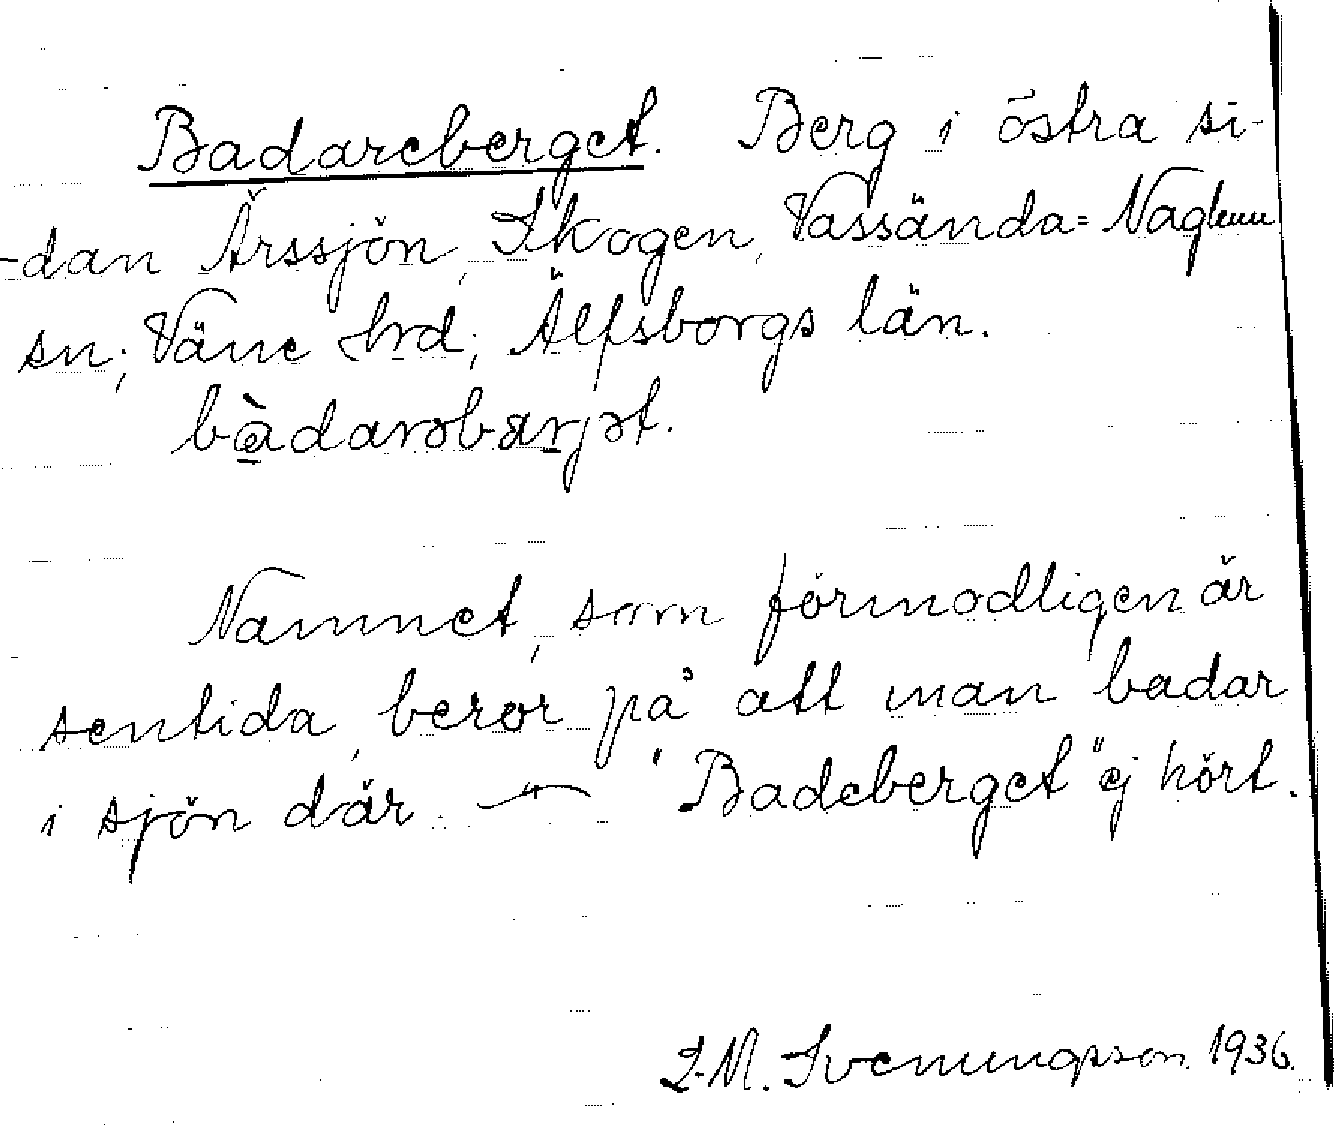 Badareberget. Berg i östra si-
-dan Ärssjön, Skogen, Vassända=Naglum
sn; Väne hrd; Älfsborgs län.
bàdarəbærjət.
Namnet, som förmodligen är
sentida, beror på att man badar
i sjön där. — "Badeberget" ej hört.
1936.